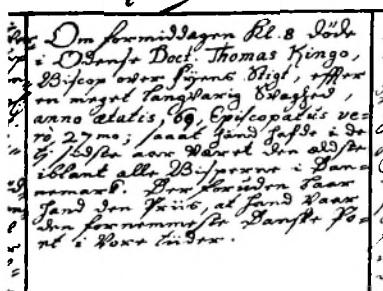 Om formiddagen Kl. 8 døde
i Odense Doct. Thomas Kingo,
Biscop over Fÿens Stigt, efter
en meget langvarig Svaghed,
anno ætatis, 69, Episcopatus ve-
rò 27mo; saaat hand hafde i de
sidste aar været den ældste
iblant alle Bisperne i Dan-
nemark. Der foruden baar
hand den Priis, at hand vaar
den fornemmeste Danske Po-
et i vore tüder.